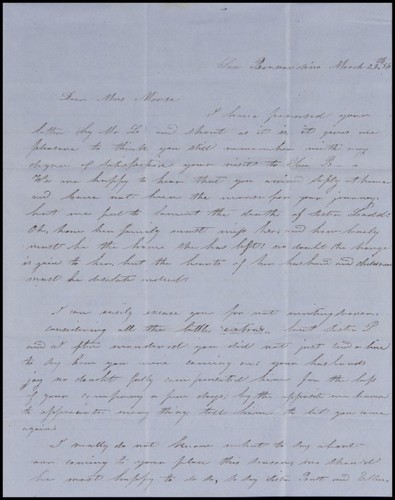 San Bernardino March 23rd 56
Dear Mrs Morse
I have perused your
letter by Mr L and short as it is it gives me
pleasure to think you still remember with any
degree of satisfaction your visit to San B
We are happy to hear that you arrived safely at home
and have not been the worse for your journey,
but was pained to lament the death of Sister Ladd.
Oh, how her family must miss her, and how lonely
must be the home she has left! no doubt the change
is gain to her but the hearts of her husband and children
must be desolate indeed.
I can easily excuse you for not writing sooner
considering all the little extras, but Sister P
and I often wondered you did not just send a line
to say how you were coming on; your husbands
joy no doubt fully compensated him for the loss
of your company a few days; by the opposite we learn
to appreciate many things
again
I really do not know what to say about
our coming to your place this season, we should
be most happy to do so, to day Sister Pratt and Ellen